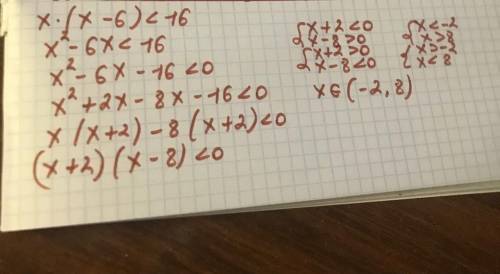 x·(x-6)<-16
x²-6x<-16
x²-6x-16<0
x²+2x-8x-16<0
x(x+2)-8(x+2)<0
(x+2)(x-8)<0
{x+2<0 {x<-2
{x-8>0 {x>8
{x+2>0 {x>-2
{x-8<0 {x<8
x∈(-2,8)